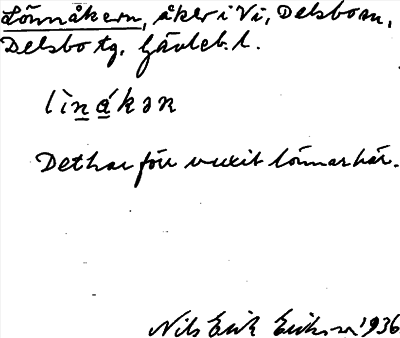 Lönnåkern, åker i Vi, Delsbo sn,
Delsbo tg. Gävleb. l.
lìn̲á̲kən
Det har förr vuxit lönnar här.
Nils Erik Eriksson 1936